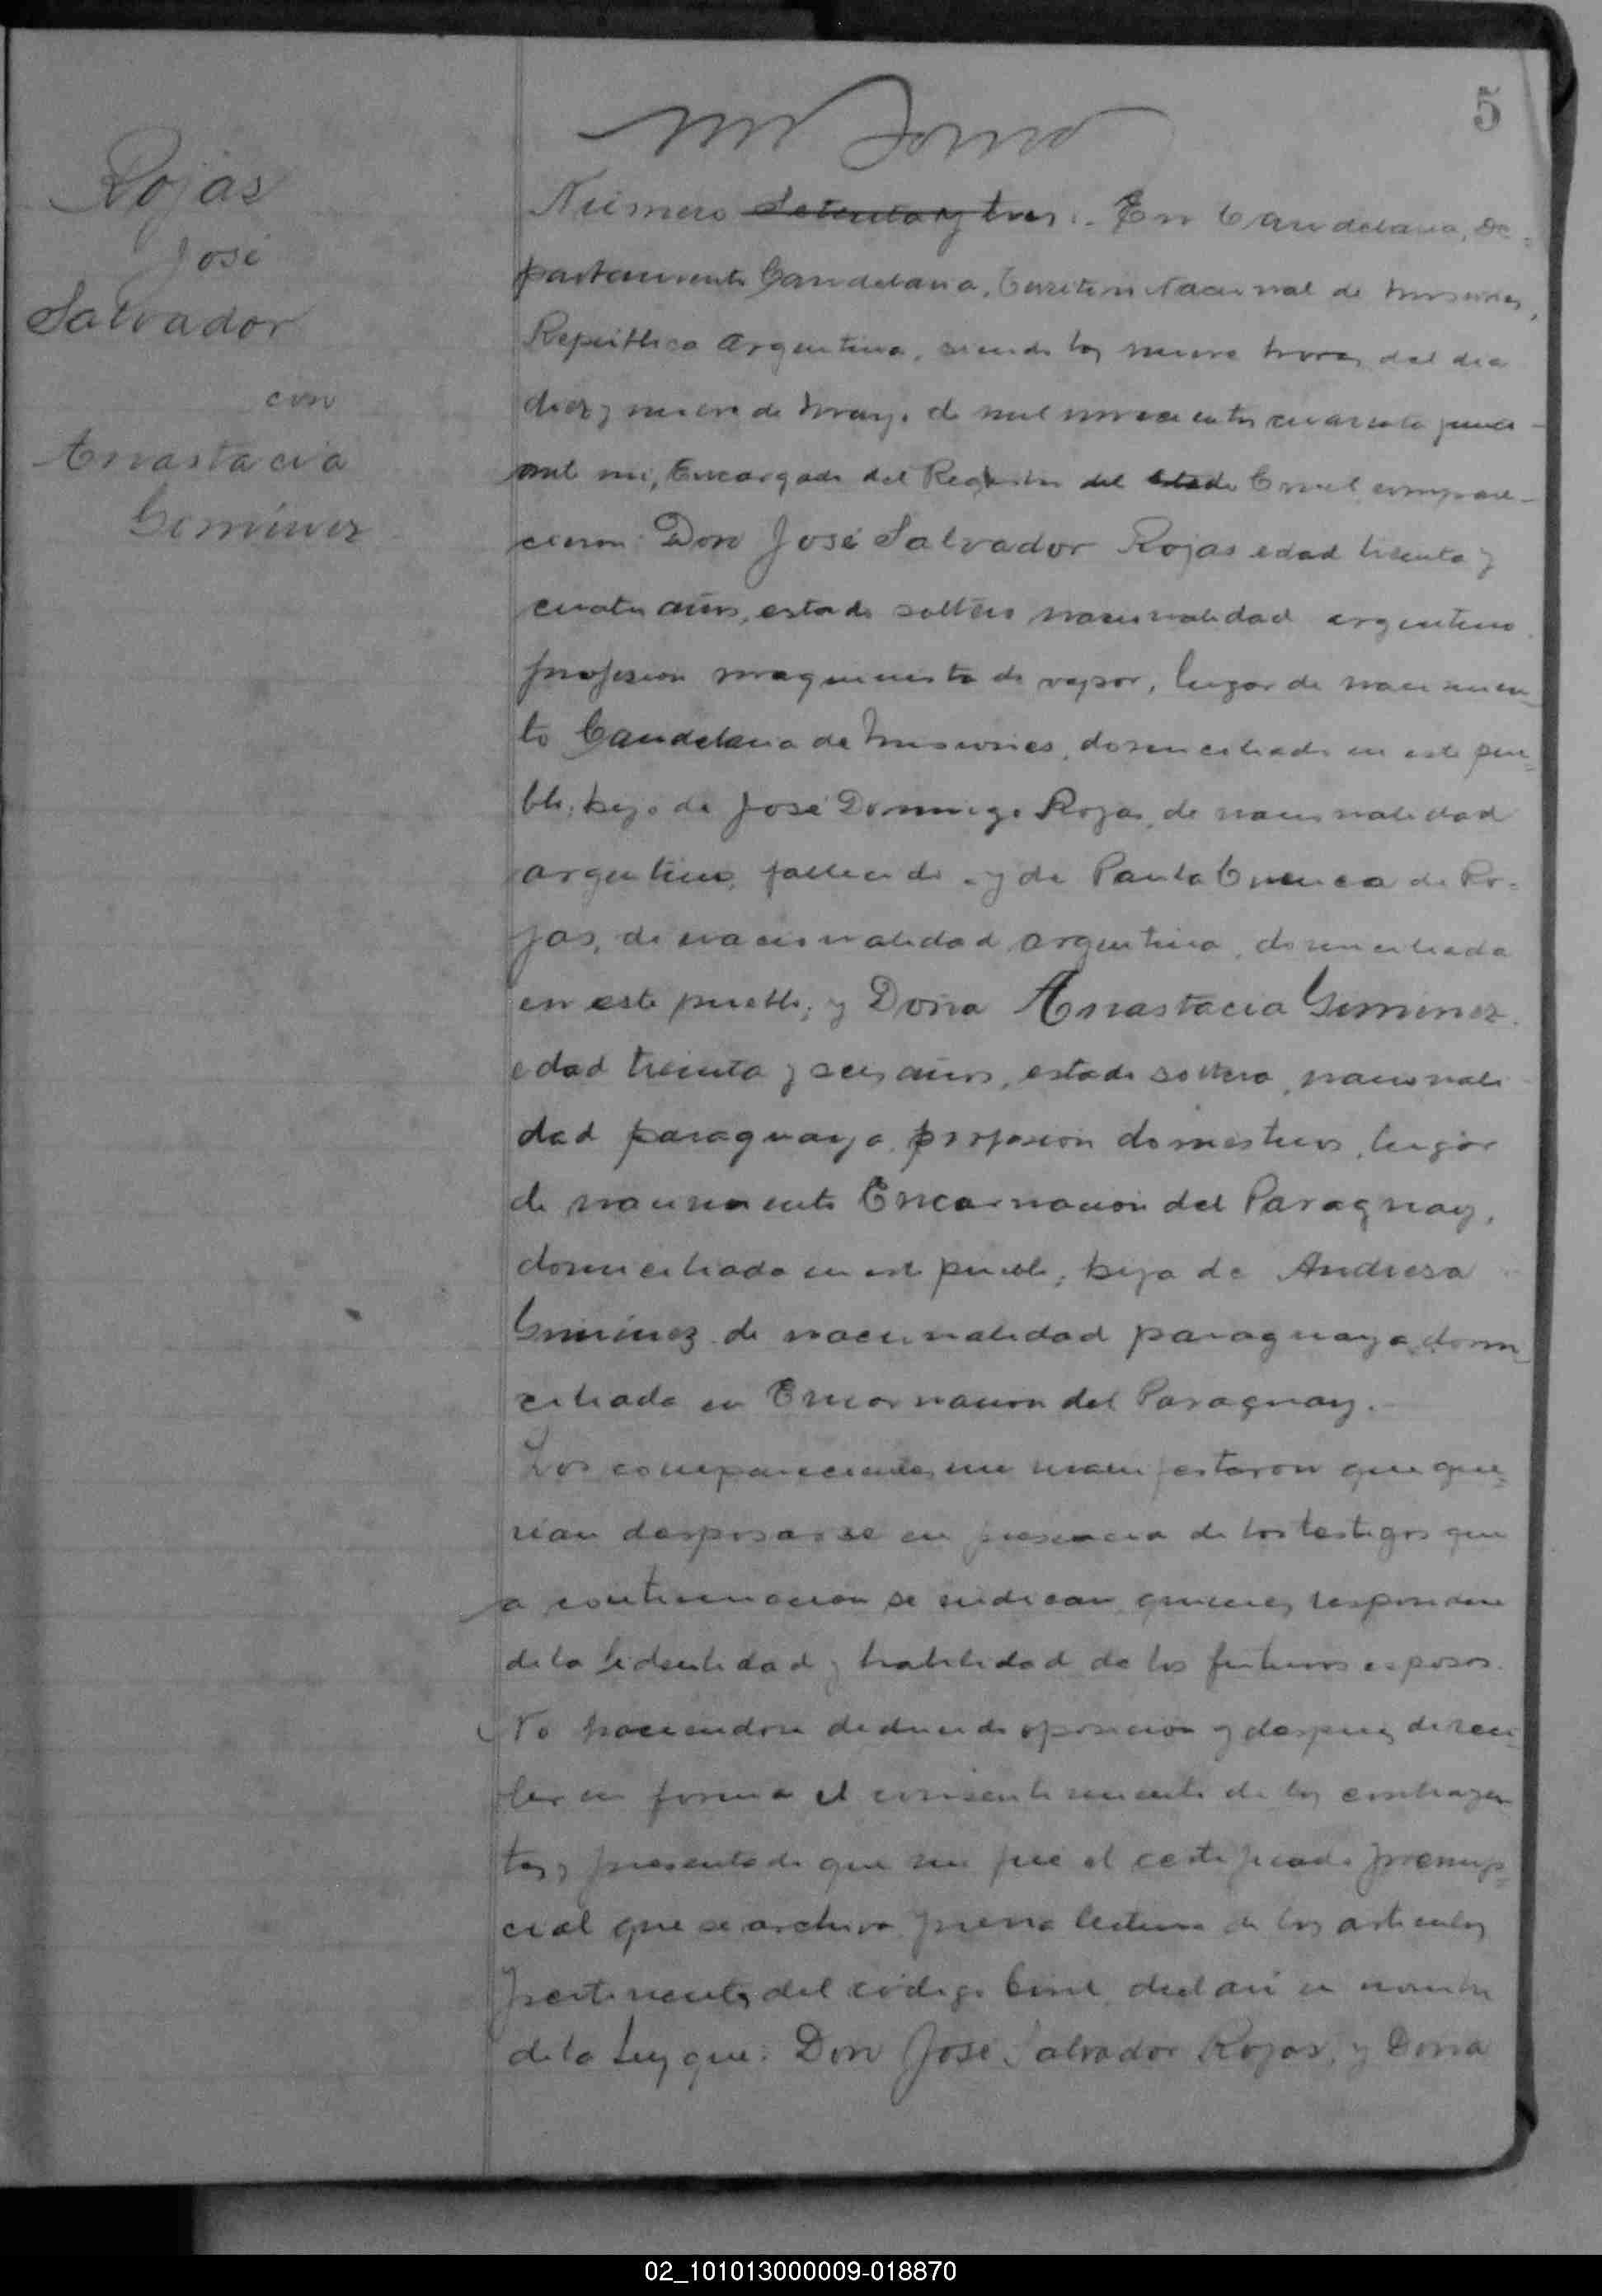 5
Rojas
José
Salvador
con
Anastacia
Giménez
Número Setenta y tres.. En Candelaria, De-
partamento Candelaria, Territorio Nacional de Misiones,
República Argentina, siendo las nueve horas del dia
diez y nueve de Mayo de mil novecientos cuarenta y
ante mi, Encargado del Registro del Estado Civil, compare-
cieron: Don José Salvador Rojas edad treinta y
cuatro años, estado soltero nacionalidad argentino
profesion maquinista de vapor, lugar de nacimien-
to Candelaria de Misiones, domiciliado en este pue-
blo, hijo de José Domingo Rojas, de nacionalidad
argentino, fallecido y de Paula Cuenca de Ro-
jas, de nacionalidad argentina, domiciliada
en este pueblo; y Doña Anastacia Gimenez
edad treinta y seis años, estado soltera, nacionali
dad paraguaya, profesion domesticos, lugar
de nacimiento Encarnacion del Paraguay,
domiciliada en este pueblo, hija de Andresa
Giménez de nacionalidad paraguaya, domi-
ciliada en Encarnacion del Paraguay.-
Los comparecientes me manifestaron que que-
rian desposarse en presencia de los testigos que
a continuacion se indican, quienes responden
de la identidad y habilidad de los futuros esposos.
No haciendose deducido oposicion y despues de reci-
bir en forma el consentimiento de los contrayen
tes, presentado que me fue el certificado prenup-
cial que se archiva, previa lectura de los articulos
pertinentes del código Civil, declaré en nombre
de la Ley que: Don José Salvador Rojas, y Doña
02_101013000009-018870